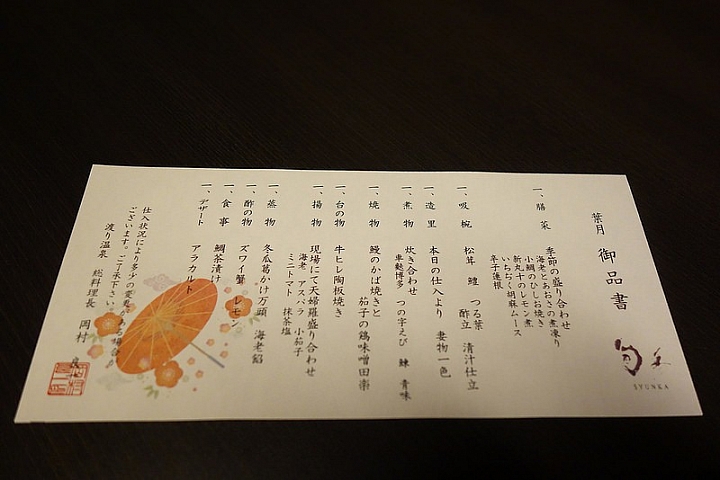 葉月 御品書
一、膳菜 季節の盛り合わせ
海老とあおさの煮凍り
小鯛のひしお焼き
新丸十のレモン煮
いちじく胡麻ムース
辛子蓮根
一、吸椀 松茸 鱧 つる菜
酢立 清汁仕立
一、造里 本日の仕入より 妻物一色
一、煮物 炊き合わせ
車麩博多 つの字えび 鰊 青味
一、焼物 鰻のかば焼きと
茄子の鶏味噌田楽
一、台の物 牛ヒレ陶板焼き
一、揚物 現場にて天婦羅盛り合わせ
海老 アスパラ 小茄子
ミニトマト 抹茶塩
一、蒸物 冬瓜葛かけ万頭 海老餡
一、酢の物 ズワイ蟹 レモン
一、食事 鯛茶漬け
一、デザート アラカルト
仕入状況により多少の変更がある場合が
ございます。ご了承下さい。
渡り温泉 総料理長 岡村
SYUNKA